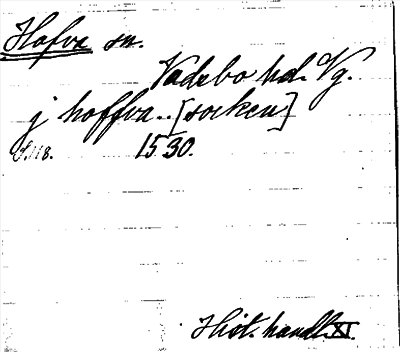 Hofva sn.
Vadsbo hd. Vg.
j hoffva.. [socken]
S. 118. 1530.
Hist. handl. XI.